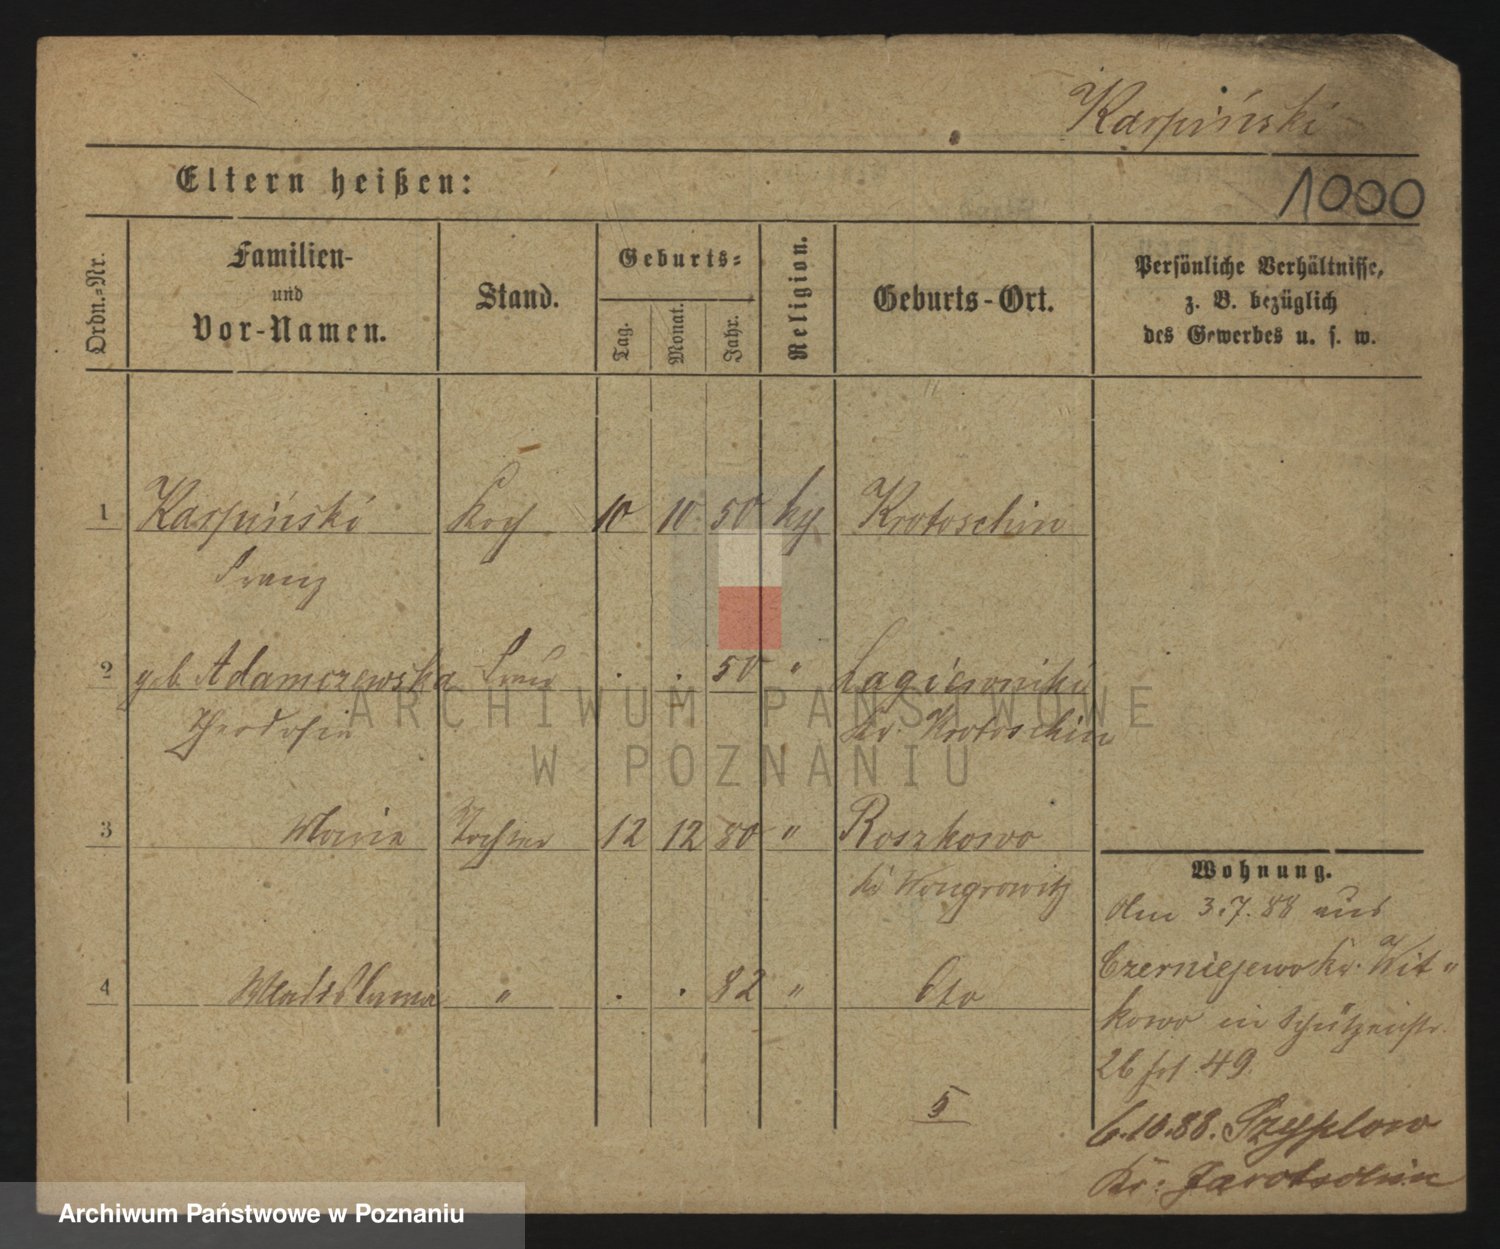 Karpiński
Eltern heißen:
1000
Ordn.-Nr.
Familien-
und
Vor-Namen.
Stand.
Geburts-
Tag.
Monat.
Jahr.
Religion.
Geburts-Ort.
Persönliche Verhältnisse,
z. B. bezüglich
des Gewerbes u. s. w.
1 Karpiński Koch 10 10 50 Krotoschin
Franz
2 geb Adamczewska Frau . . 50 " Łagiewniki
Kr. Krotoschin
ARCHIWUM PAŃSTWOWE
W POZNANIU
3 Marie Tochter 12 12 80 " Roszkowo
Kr Wongrowitz
4 Wladislawa " . . 82 "
5
Wohnung.
Am 3.7.88 aus
Czerniejewo Kr. Wit"
kowo in Schützenstr.
26 49.
6.10.88. Szyplow
Kr: Jarotschin
Archiwum Państwowe w Poznaniu